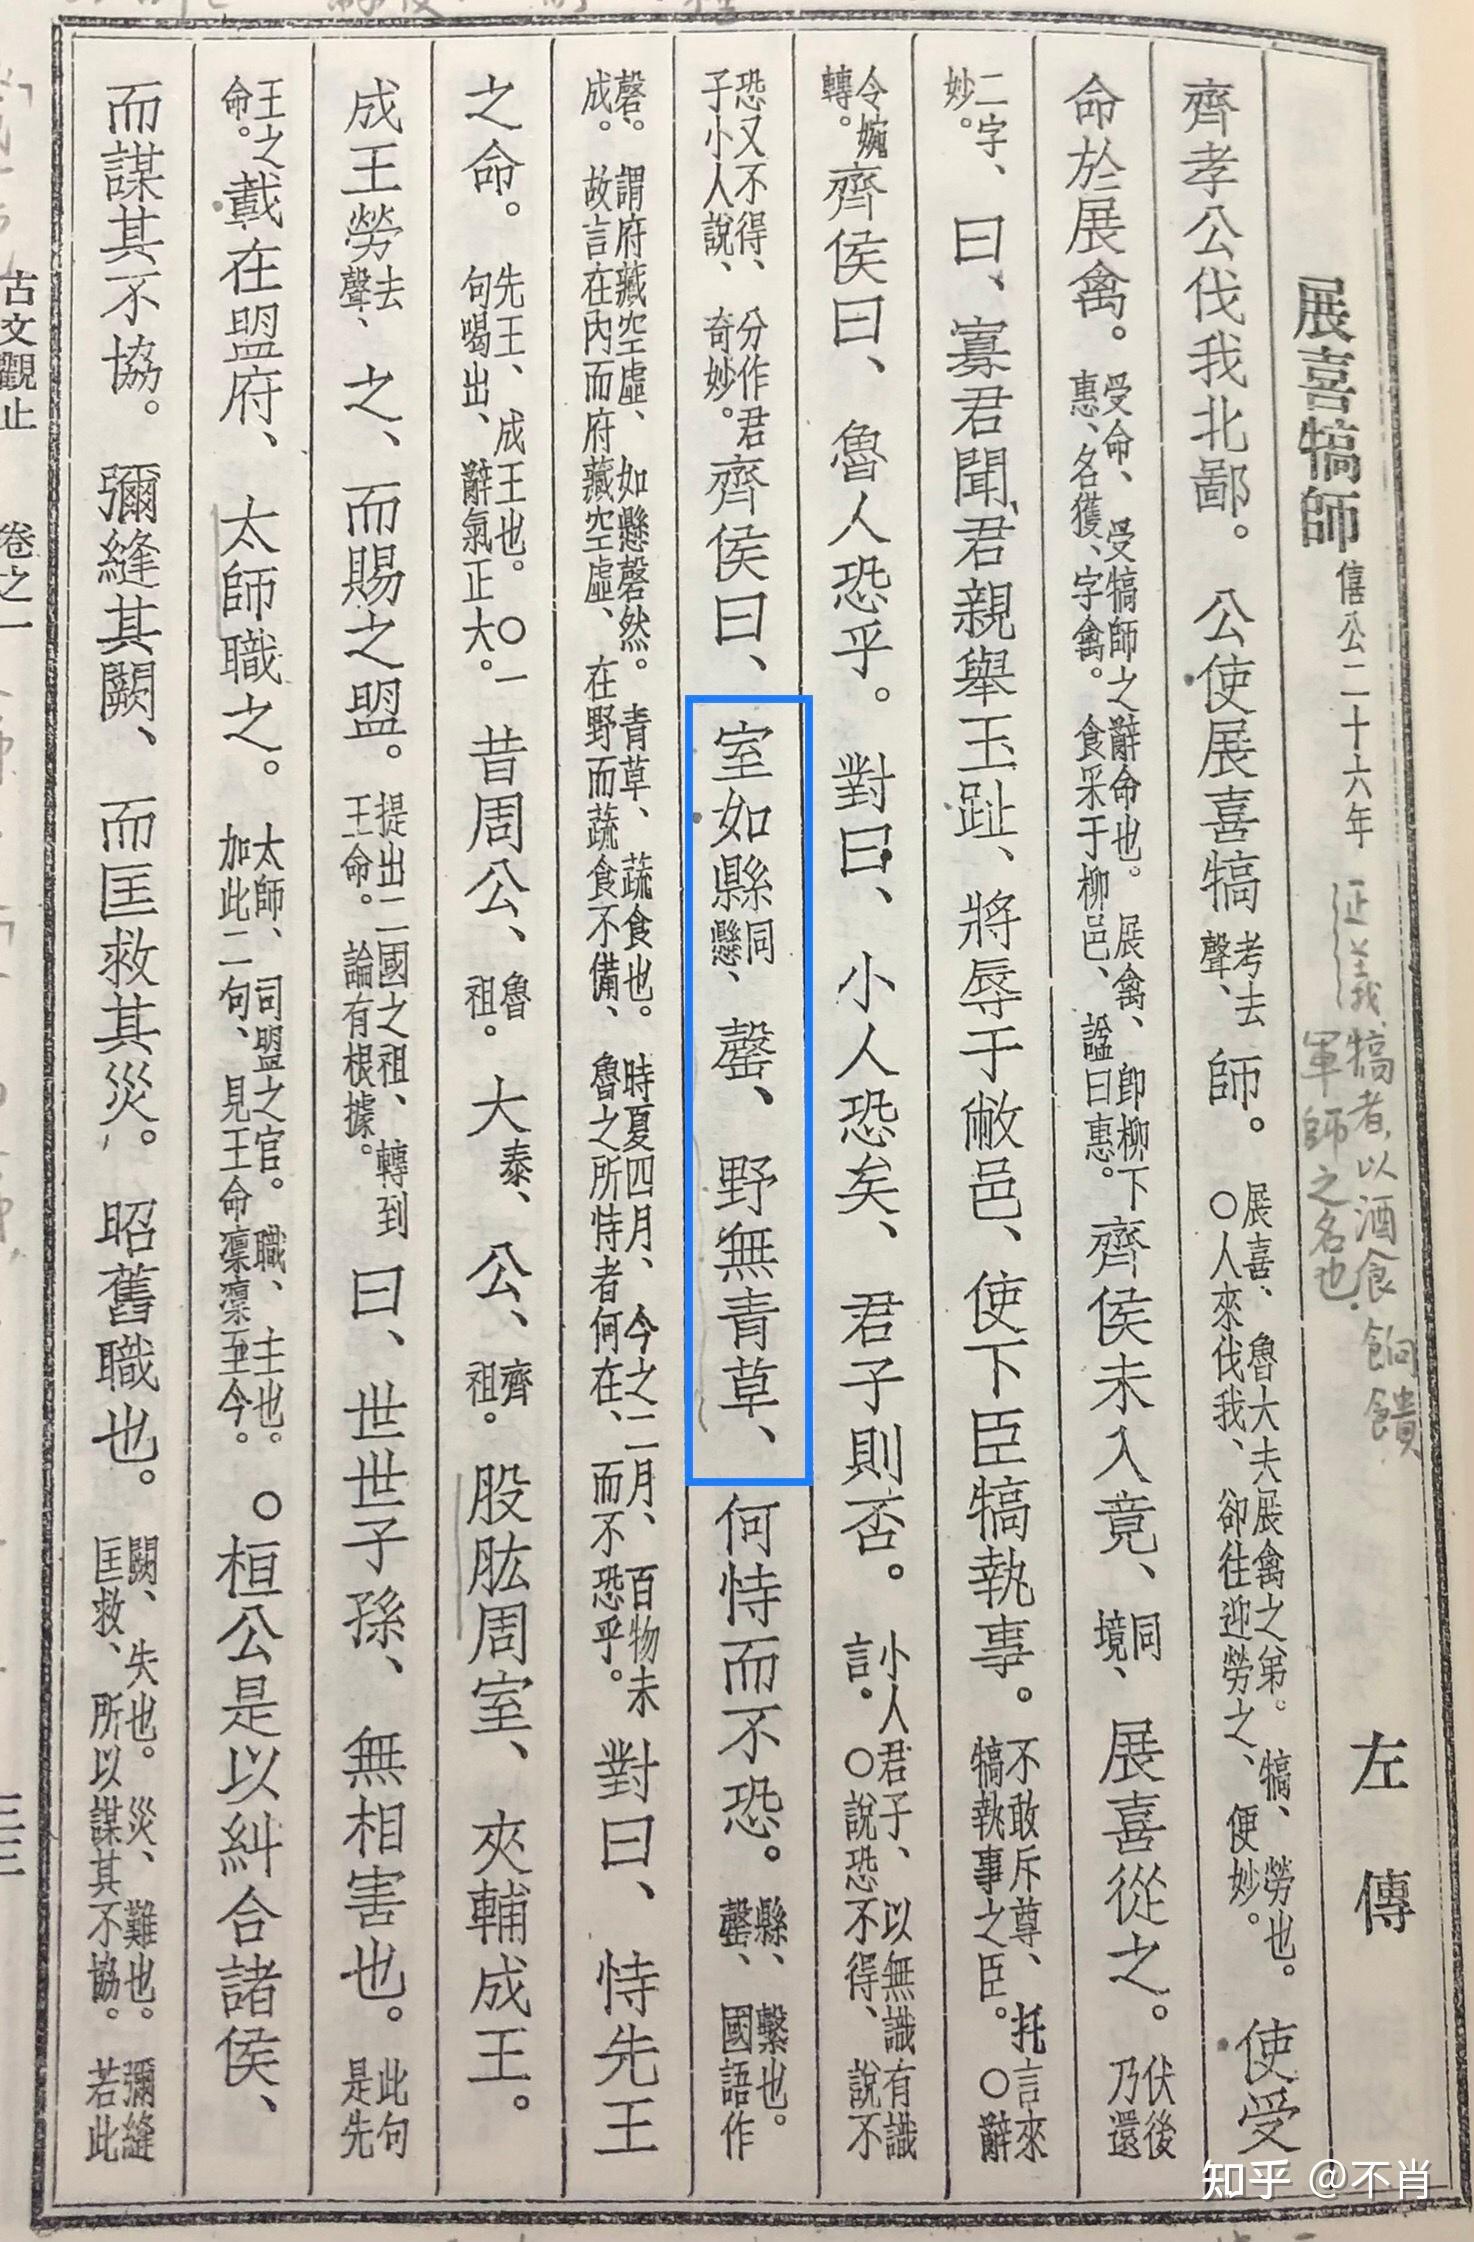 展喜犒師 僖公二十六年 左傳
義犒者,以酒食餉饋
軍師之名也.
齊孝公伐我北鄙。公使展喜犒考去聲、師。展喜、魯大夫展禽之弟。犒、勞也。○人來伐我、卻往迎勞之、便妙。使受
命於展禽。受命、受犒師之辭命也。展禽、卽柳下惠、名獲、字禽。食采于柳邑、諡曰惠。齊侯未入竟、同境、展喜從之。伏後乃還
二字、妙。曰、寡君聞君親舉玉趾、將辱于敝邑、使下臣犒執事。不敢斥尊、托言來犒執事之臣。○辭
令婉轉。齊侯曰、魯人恐乎。對曰、小人恐矣、君子則否。小人君子、以無識有識言。○說恐不得、說不
恐又不得、分作君子小人說、奇妙。齊侯曰、室如縣同懸、罄、野無青草、何恃而不恐。縣、繫也。罄、國語作
磬。謂府藏空虛、如懸磬然。青草、蔬食也。時夏四月、今之二月、百物未成。故言在內而府藏空虛、在野而蔬食不備、魯之所恃者何在、而不恐乎。對曰、恃先王
之命。先王、成王也。○一句喝出、辭氣正大。昔周公、魯祖。大泰、公、齊祖。股肱周室、夾輔成王。
成王勞去聲、之、而賜之盟。提出二國之祖、轉到王命。論有根據。曰、世世子孫、無相害也。此句是先
王之命。載在盟府、太師職之。太師、司盟之官。職、主也。加此二句、見王命凜凜至今。○桓公是以糾合諸侯、
而謀其不協。彌縫其闕、而匡救其災。昭舊職也。闕、失也。災、難也。彌縫匡救、所以謀其不協。若此
古文觀止 卷之一 三三
知乎 @不肖